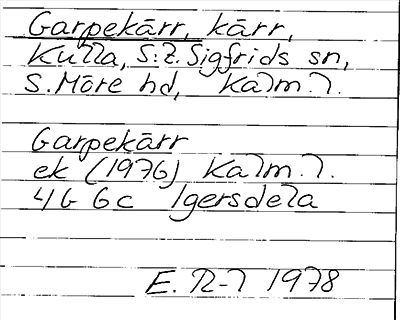 Garpekärr, kärr,
Kulla, S:t Sigfrids sn,
S. Möre hd, Kalm. l.
Garpekärr
ek (1976) Kalm. l.
4G 6c Igersdela
E. R-l 1978